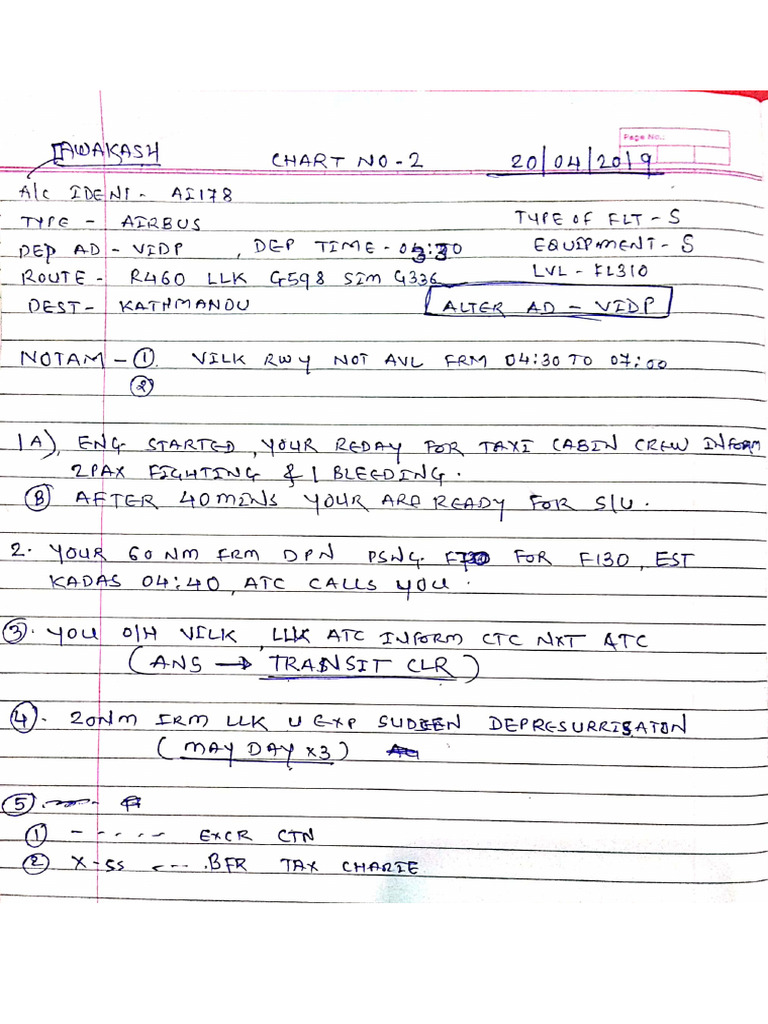 AWAKASH CHART NO-2 20/04/2019
Page No.:
A/C IDENT - AI178
TYPE - AIRBUS TYPE OF FLT - S
DEP AD - VIDP , DEP TIME - EQUIPMENT - S
ROUTE - R460 LLK G598 SIM G336 LVL - FL310
DEST - KATHMANDU ALTER AD - VIDP
NOTAM - ① VILK RWY NOT AVL FRM 04:30 TO 07:00
②
1A), ENG STARTED, YOUR REDAY FOR TAXI CABIN CREW INFORM
2PAX FIGHTING & 1 BLEEDING.
Ⓑ AFTER 40 MINS YOUR ARE READY FOR S/U.
2. YOUR 60 NM FRM DPN PSNG FOR F130, EST
KADAS 04:40, ATC CALLS YOU.
③. YOU O/H VILK, LLK ATC INFORM CTC NXT ATC
(ANS → TRANSIT CLR)
④. 20NM FRM LLK U EXP SUDEEN DEPRESURRISATON
(MAY DAY X3)
⑤.
① - - - - - EXCR CTN
② X-SS - - - . BFR TAX CHARIE